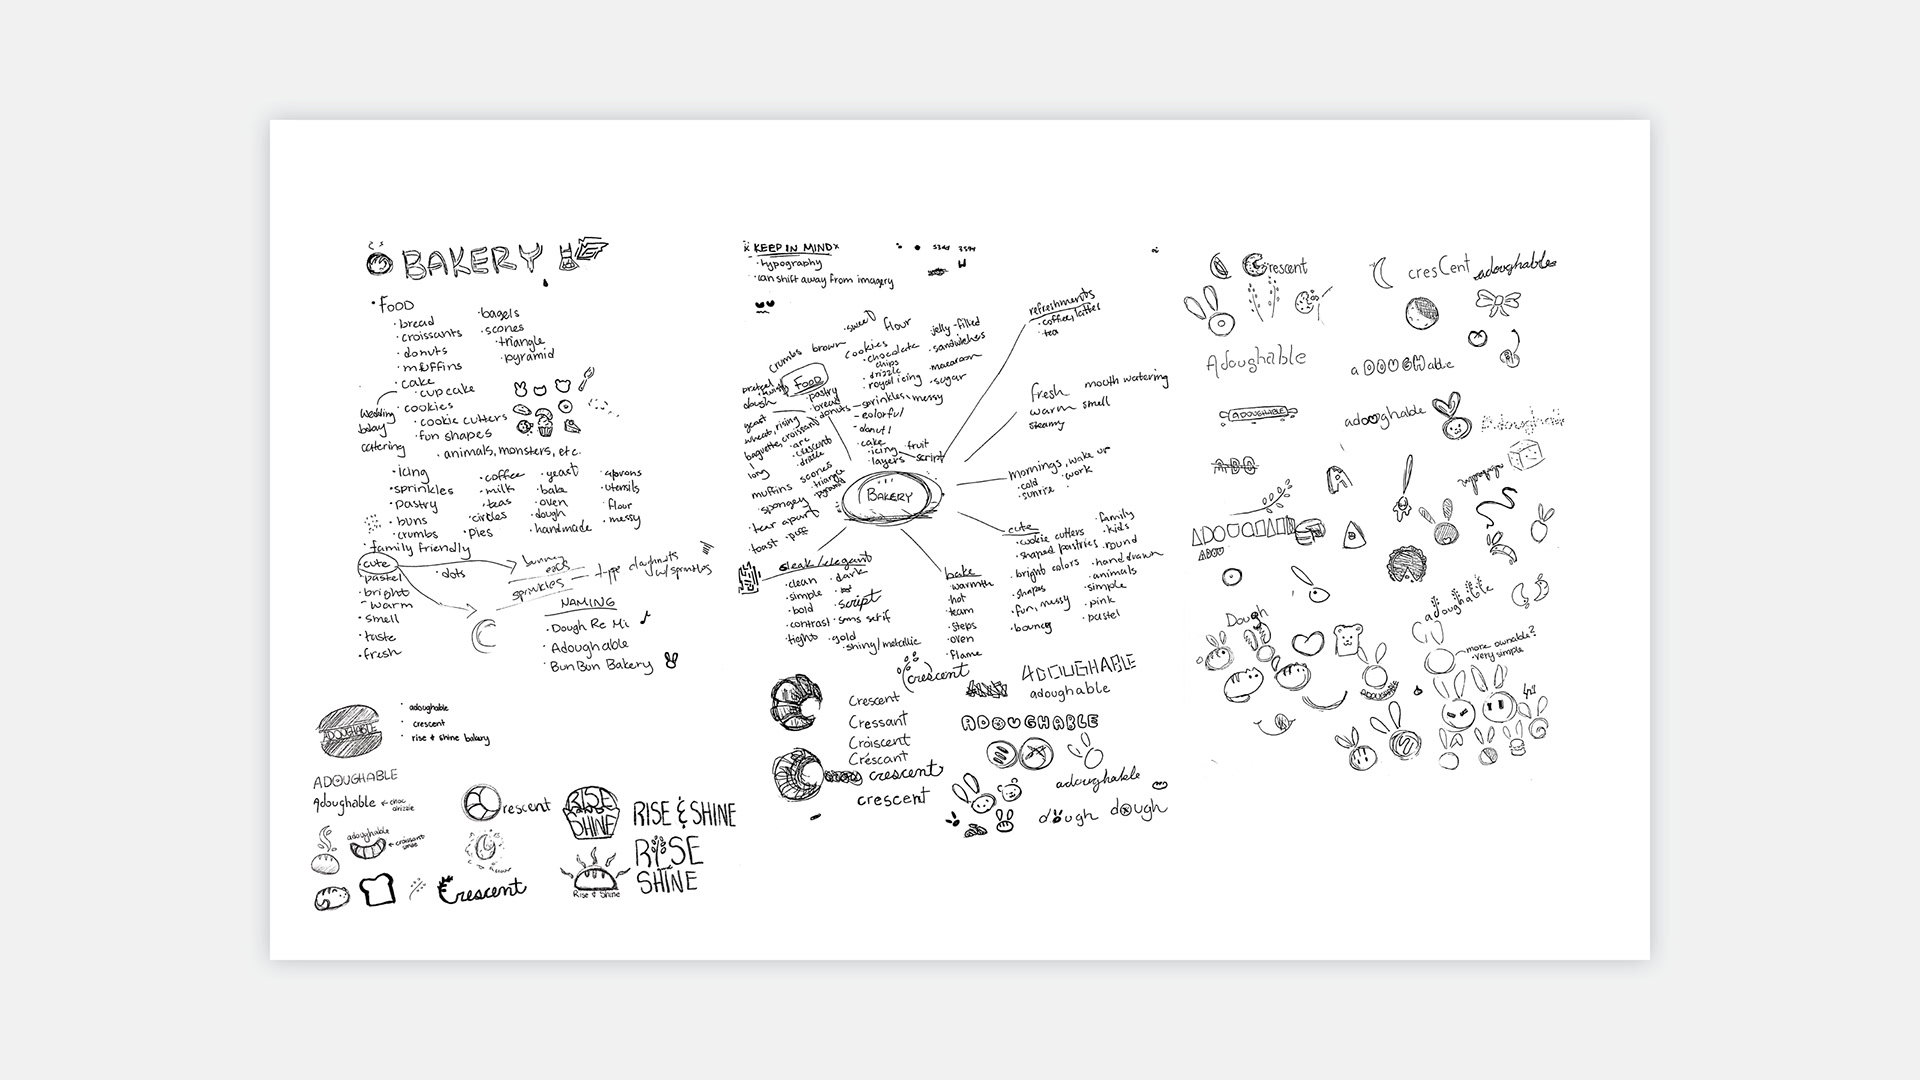 BAKERY
• FOOD
· bread
· croissants
· donuts
· muffins
· cake
· cupcake
· cookies
· cookie cutters
· fun shapes
· animals, monsters, etc.
· bagels
· scones
· triangle
· pyramid
Wedding
bday
catering
· icing
· sprinkles
· pastry
· buns
· crumbs
· coffee
· milk
· teas
· circles
· pies
· yeast
· bake
· oven
· dough
· handmade
· aprons
· utensils
· flour
· messy
· family friendly
· cute
· pastel
· bright
- warm
· smell
· taste
· fresh
· dots
bunny
ears
sprinkles
type doughnuts
w/sprinkles
NAMING
· Dough Re Mi
· Adoughable
· BunBun Bakery
ADOUGHABLE
· adoughable
· crescent
· rise & shine bakery
ADOUGHABLE
Adoughable
choc
drizzle
adoughable
croissant
smile
rescent
Crescent
RISE
SHINE
RISE & SHINE
RISE
SHINE
Rise & Shine
KEEP IN MIND
· typography
· can shift away from imagery
FOOD
crumbs
brown
· sweet
flour
cookies
· chocolate
chips
· drizzle
· royal icing
· jelly-filled
· sandwiches
· macaroon
· sugar
pretzel
· twisty
dough
yeast
wheat, rising
baguette, croissant
long
· arc
· crescent
· drizzle
· pastry
· bread
· donuts
- sprinkles, messy
- colorful
- donut!
· cake
· icing
· layers
· fruit
script
muffins
scones
· triangle
· pyramid
spongey
· tear apart
· toast
· puff
BAKERY
refreshments
· coffee, lattes
· tea
fresh
mouth watering
warm smell
steamy
mornings, wake up
· cold
· work
· sunrise
cute
· cookie cutters
· shaped pastries
· bright colors
· shapes
· fun, messy
· bouncy
· family
· kids
· round
· hand drawn
· animals
· simple
· pink
· pastel
bake
· warmth
· hot
· team
· steps
· oven
· flame
sleak/elegant
· clean
· simple
· bold
· contrast
· tight
· dark
· script
· sans serif
· gold
· shiny/metallic
crescent
Crescent
Cressant
Croiscent
Crescant
crescent
crescent
ADOUGHABLE
adoughable
ADOUGHABLE
adoughable
dough
dough
Crescent
cresCent
adoughable
Adoughable
aDOUGHable
ADOUGHABLE
adoughable
Adoughable
ADO
adoughable
ADOU
Dough
adoughable
more ownable?
· very simple
ADOUGHABLE